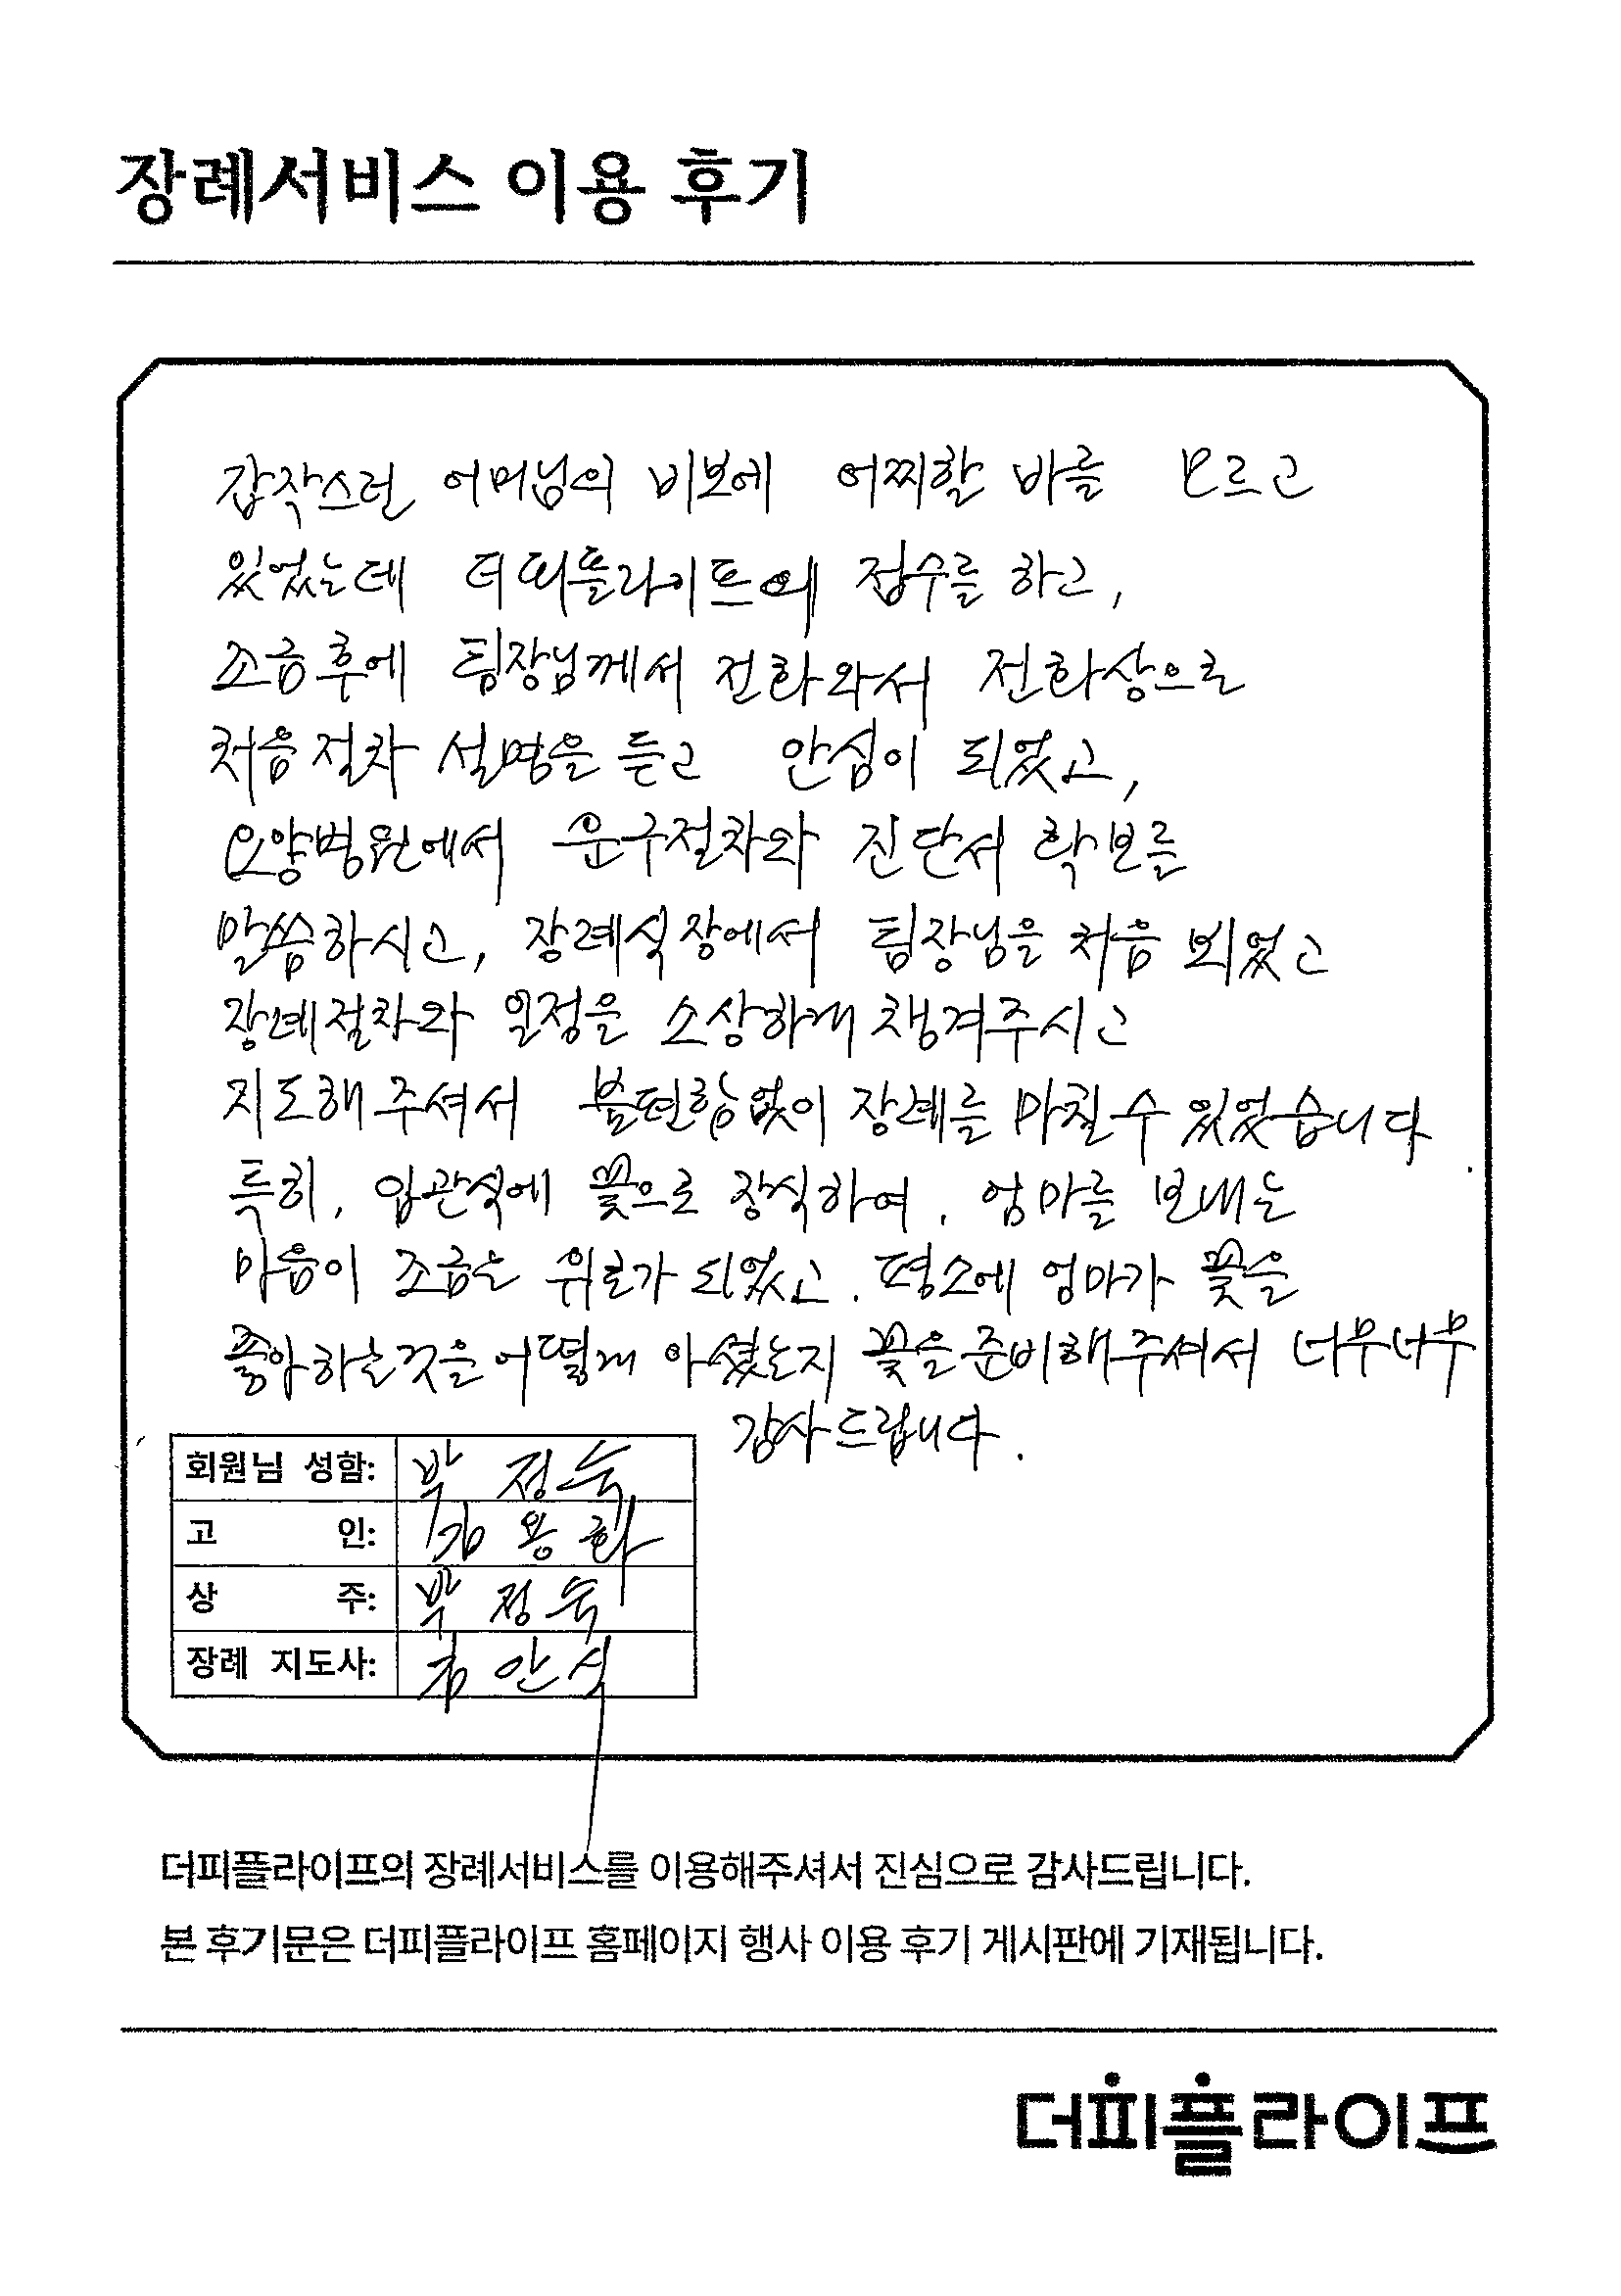 장례서비스 이용 후기
갑작스런 어머님의 비보에 어찌할 바를 모르고
있었는데 더피플라이프에 접수를 하고,
조금후에 팀장님께서 전화와서 전화상으로
처음절차 설명을 듣고 안심이 되었고,
요양병원에서 운구절차와 진단서 확보를
말씀하시고, 장례식장에서 팀장님을 처음 뵈었고
장례절차와 일정을 소상하게 챙겨주시고
지도해주셔서 불편함없이 장례를 마칠수 있었습니다.
특히, 입관식에 꽃으로 장식하여, 엄마를 보내는
마음이 조금는 위로가 되었고. 평소에 엄마가 꽃을
좋아하는것을 어떻게 아셨는지 꽃을준비해주셔서 너무너무
감사드립니다.
회원님 성함: 박정숙
고 인: 김용화
상 주: 박정숙
장례 지도사: 김안식
더피플라이프의 장례서비스를 이용해주셔서 진심으로 감사드립니다.
본 후기문은 더피플라이프 홈페이지 행사 이용 후기 게시판에 기재됩니다.
더피플라이프